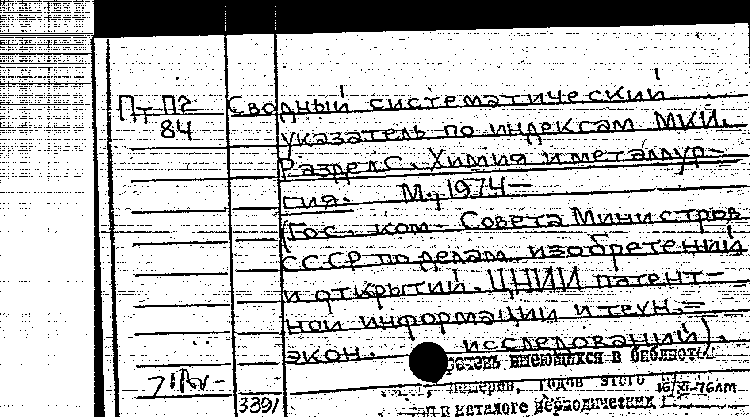 Пт П2 Сводный систематический
84 указатель по индексам МКИ.
Раздел С. Химия и металлур-
гия. М., 1974—
(Гос. ком. Совета Министров
СССР по делам изобретений
и открытий. ЦНИИ патент-
ной информации и техн.=
экон. исследований).
имеющихся в библиотеке
номеров, годов этого
в каталоге периодических
339/